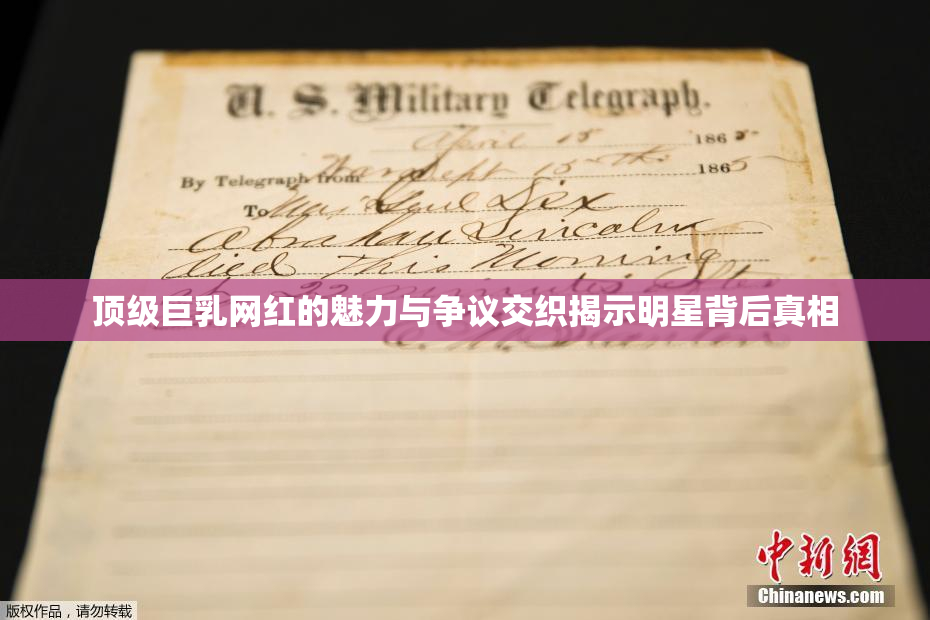 U. S. Military Telegraph.
April 15 1865
By Telegraph from War Dept 15th 1865
To Maj Genl Dix
Abraham Lincoln
died This Morning
at 22 minutes after
顶级巨乳网红的魅力与争议交织揭示明星背后真相
中新网
Chinanews.com
版权作品，请勿转载